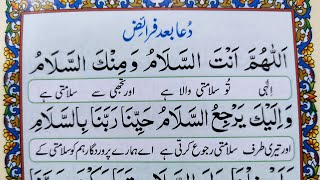 دُعا بعد فرائض
اَللّٰهُمَّ اَنْتَ السَّلَامُ وَمِنْكَ السَّلَامُ
الٰہی تُو سلامتی والا ہے اور تجھی سے سلامتی ہے
وَاِلَيْكَ يَرْجِعُ السَّلَامُ حَيِّنَا رَبَّنَا بِالسَّلَامِ
اور تیری طرف سلامتی رجوع کرتی ہے اے ہمارے پروردگار ہم کو سلامتی کے